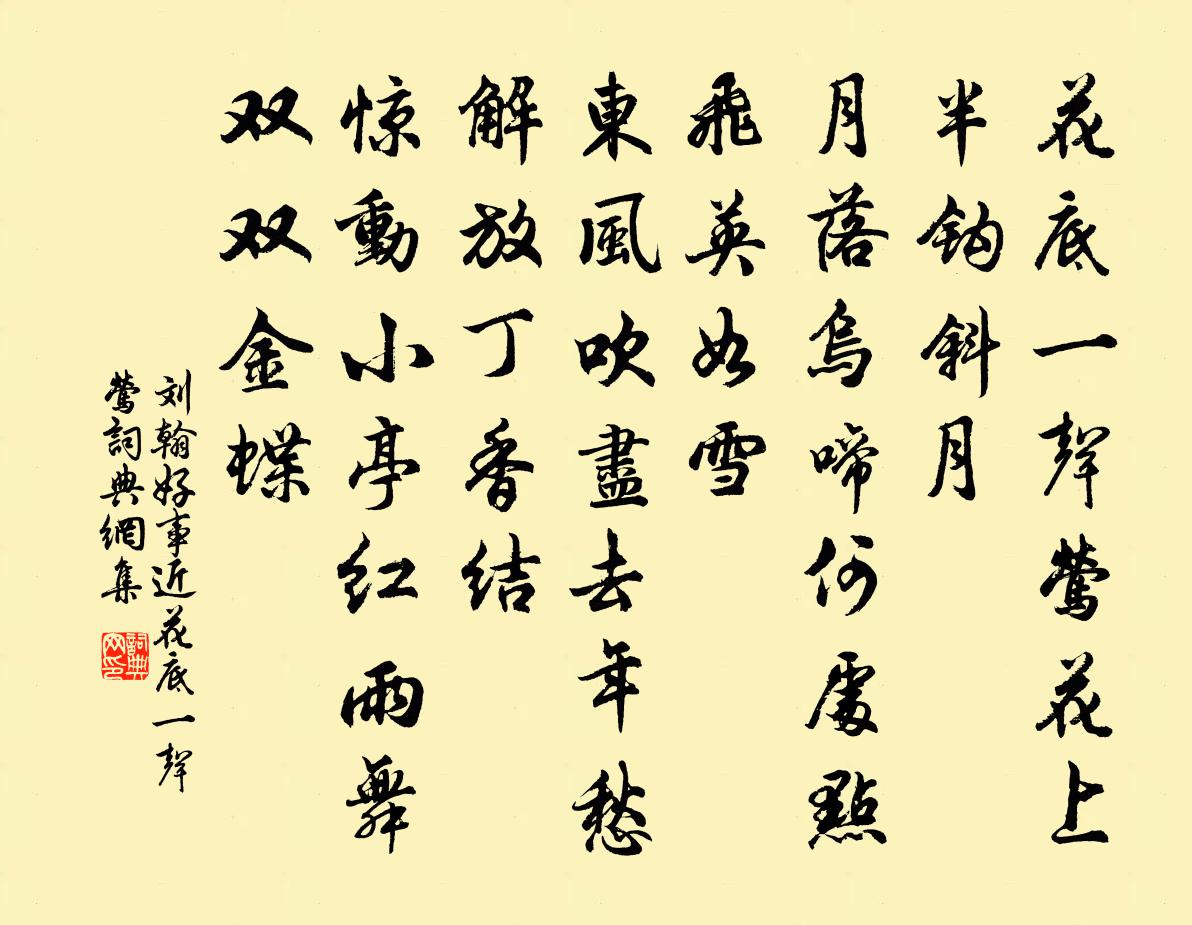 花底一聲鶯花上
半鈎斜月
月落烏啼何處點
飛英如雪
東風吹盡去年愁
解放丁香结
惊動小亭红雨舞
双双金蝶
刘翰好事近花底一聲
鶯詞典網集
詞典
网印